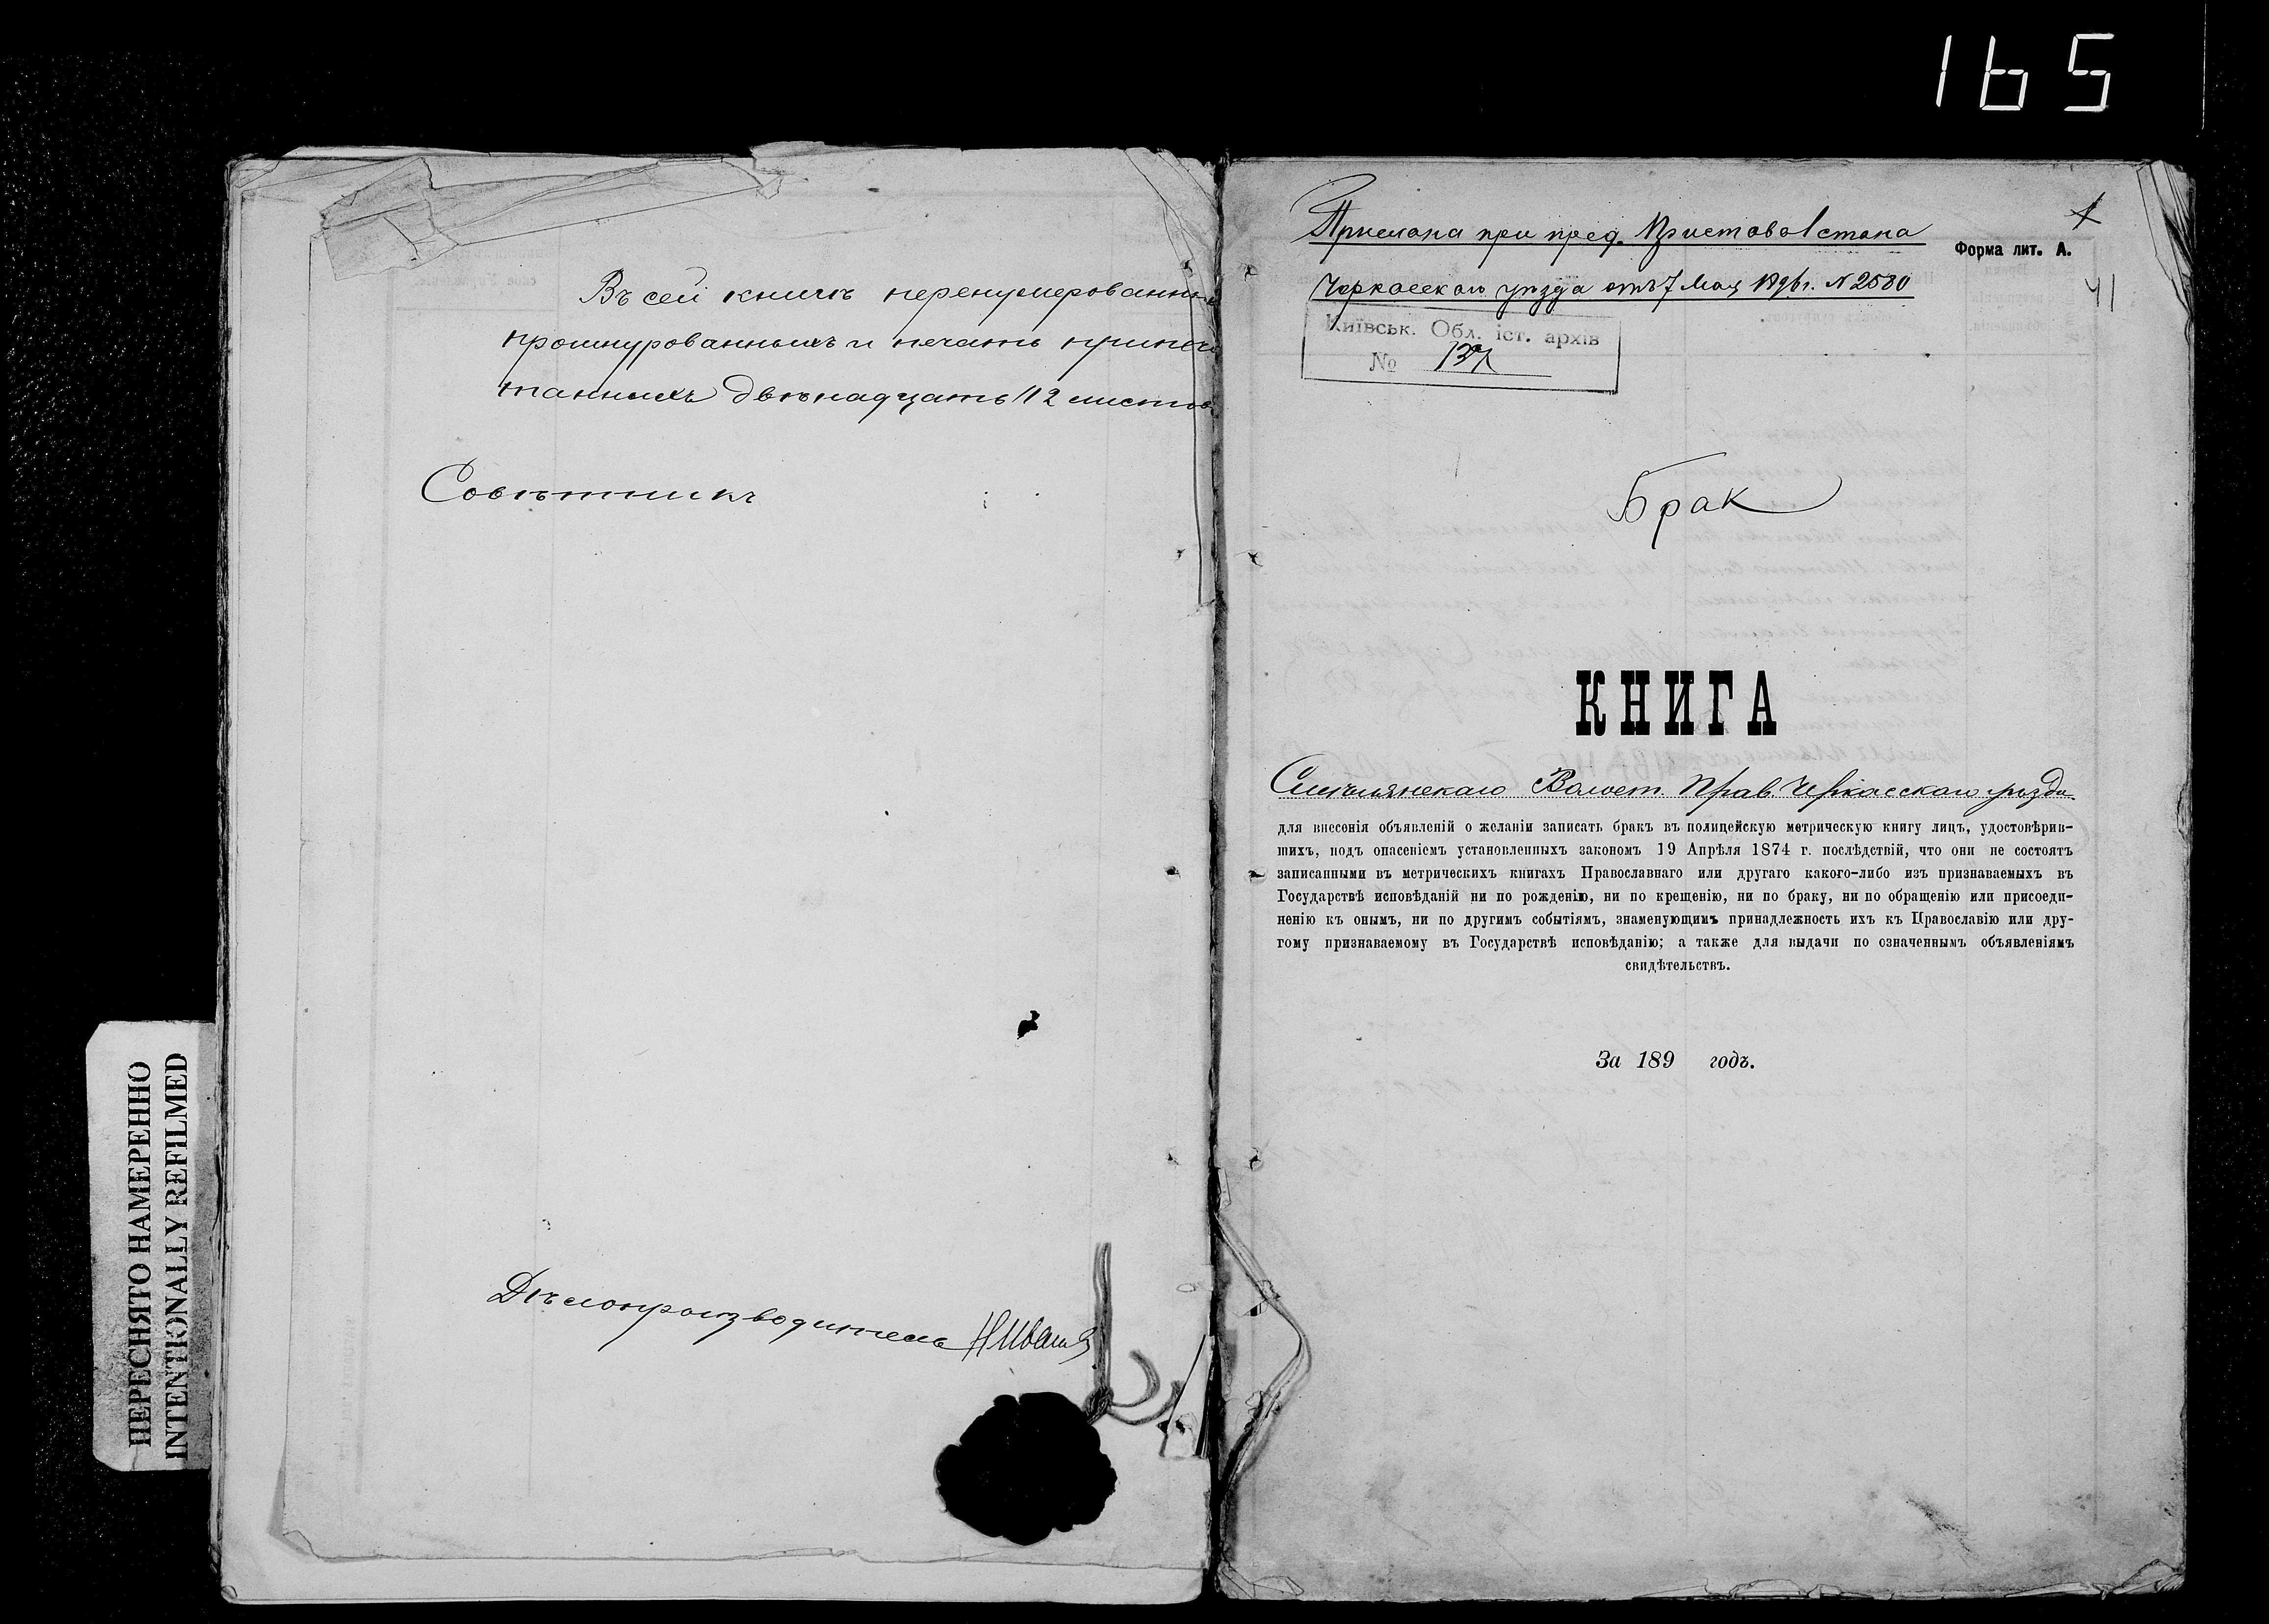 165
Въ сей книгѣ перенумерованны
прошнурованныхъ и печатью припеча
танныхъ двѣнадцать /12 листов
Совѣтникъ
Дѣлопроизводитель
ПЕРЕСНЯТО НАМЕРЕННО
INTENTIONALLY REFILMED
Прислана при пред. Пристава 1 стана
Форма лит. А.
Черкасскаго уѣзда отъ 7 Мая 1896 г. N 2580
41
Київськ. Обл. іст. архів
№
Брак
КНИГА
Смѣлянскаго Волост. Прав. Черкасскаго уѣзда
для внесенія объявленій о желаніи записать бракъ въ полицейскую метрическую книгу лицъ, удостовѣрив-
шихъ, подъ опасеніемъ установленныхъ закономъ 19 Апрѣля 1874 г. послѣдствій, что они не состоятъ
записанными въ метрическихъ книгахъ Православнаго или другаго какого-либо изъ признаваемыхъ въ
Государствѣ исповѣданій ни по рожденію, ни по крещенію, ни по браку, ни по обращенію или присоеди-
ненію къ онымъ, ни по другимъ событіямъ, знаменующимъ принадлежность ихъ къ Православію или дру-
гому признаваемому въ Государствѣ исповѣданію; а также для выдачи по означеннымъ объявленіямъ
свидѣтельствъ.
За 189 годъ.